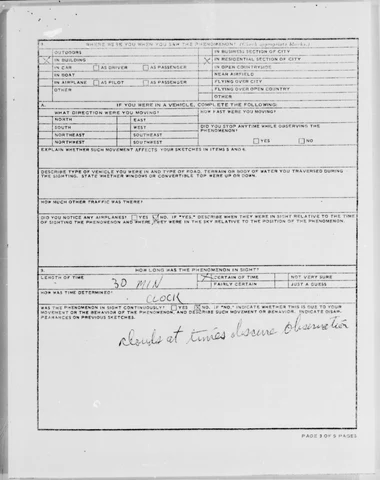 7. WHERE WERE YOU WHEN YOU SAW THE PHENOMENON? (Check appropriate blocks.)
OUTDOORS IN BUSINESS SECTION OF CITY
X IN BUILDING X IN RESIDENTIAL SECTION OF CITY
IN CAR AS DRIVER AS PASSENGER IN OPEN COUNTRYSIDE
IN BOAT NEAR AIRFIELD
IN AIRPLANE AS PILOT AS PASSENGER FLYING OVER CITY
OTHER FLYING OVER OPEN COUNTRY
OTHER
A. IF YOU WERE IN A VEHICLE, COMPLETE THE FOLLOWING:
WHAT DIRECTION WERE YOU MOVING? HOW FAST WERE YOU MOVING?
NORTH EAST
SOUTH WEST DID YOU STOP ANYTIME WHILE OBSERVING THE
NORTHEAST SOUTHEAST PHENOMENON?
NORTHWEST SOUTHWEST YES NO
EXPLAIN WHETHER SUCH MOVEMENT AFFECTS YOUR SKETCHES IN ITEMS 5 AND 6.
DESCRIBE TYPE OF VEHICLE YOU WERE IN AND TYPE OF ROAD, TERRAIN OR BODY OF WATER YOU TRAVERSED DURING
THE SIGHTING. STATE WHETHER WINDOWS OR CONVERTIBLE TOP WERE UP OR DOWN.
HOW MUCH OTHER TRAFFIC WAS THERE?
DID YOU NOTICE ANY AIRPLANES? YES X NO. IF "YES," DESCRIBE WHEN THEY WERE IN SIGHT RELATIVE TO THE TIME
OF SIGHTING THE PHENOMENON AND WHERE THEY WERE IN THE SKY RELATIVE TO THE POSITION OF THE PHENOMENON.
HOW LONG WAS THE PHENOMENON IN SIGHT?
LENGTH OF TIME 30 MIN X CERTAIN OF TIME NOT VERY SURE
FAIRLY CERTAIN JUST A GUESS
HOW WAS TIME DETERMINED? CLOCK
WAS THE PHENOMENON IN SIGHT CONTINUOUSLY? YES X NO. IF "NO," INDICATE WHETHER THIS IS DUE TO YOUR
MOVEMENT OR THE BEHAVIOR OF THE PHENOMENON, AND DESCRIBE SUCH MOVEMENT OR BEHAVIOR. INDICATE DISAP-
PEARANCES ON PREVIOUS SKETCHES.
clouds at times obscure observation
PAGE 3 OF 5 PAGES